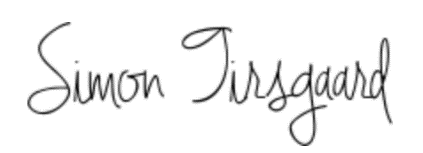 Simon Tirsgaard